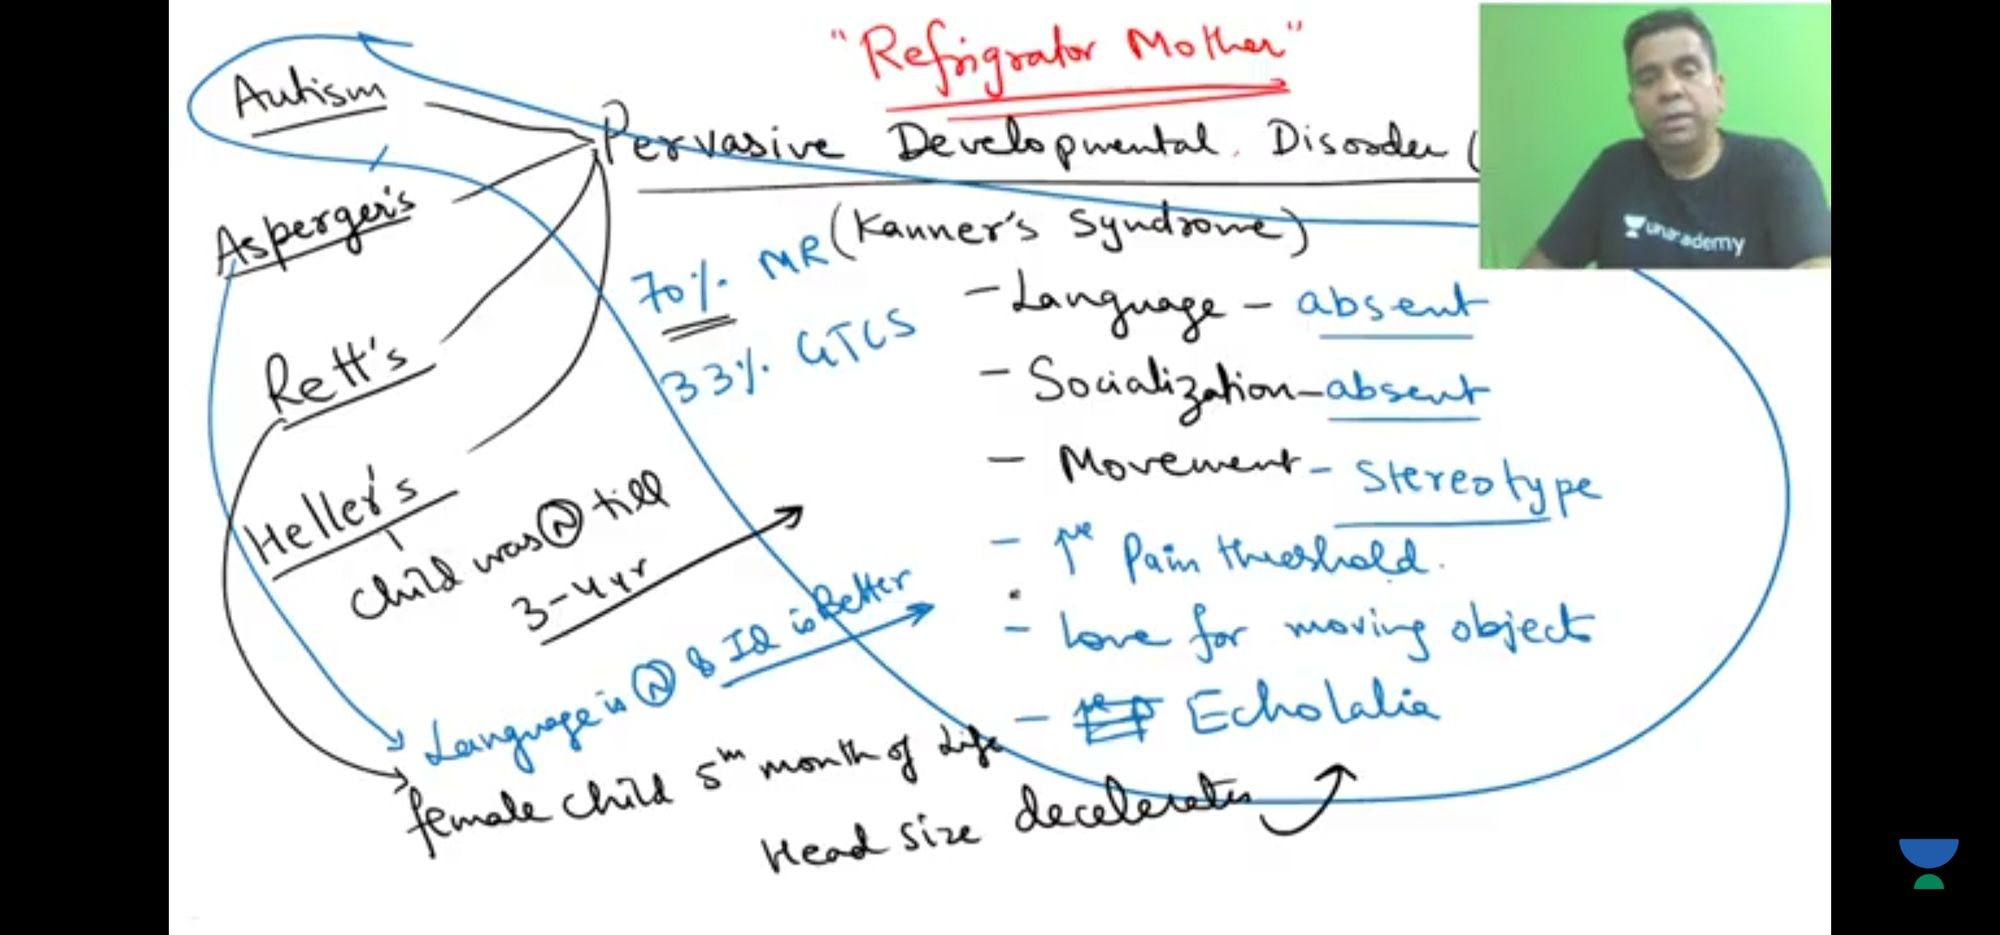 "Refrigrator Mother"
Autism
Pervasive Developmental Disorder (
Asperger's
(Kanner's Syndrome)
70% MR
33% GTCS
- Language - absent
- Socialization - absent
- Movement - Stereotype
- ↑se Pain threshold.
- Love for moving objects
- Echolalia
Rett's
Heller's
Child was Ⓝ till
3-4yr
Language is Ⓝ & IQ is Better
female child 5th month of Life
Head size decelerates
unacademy